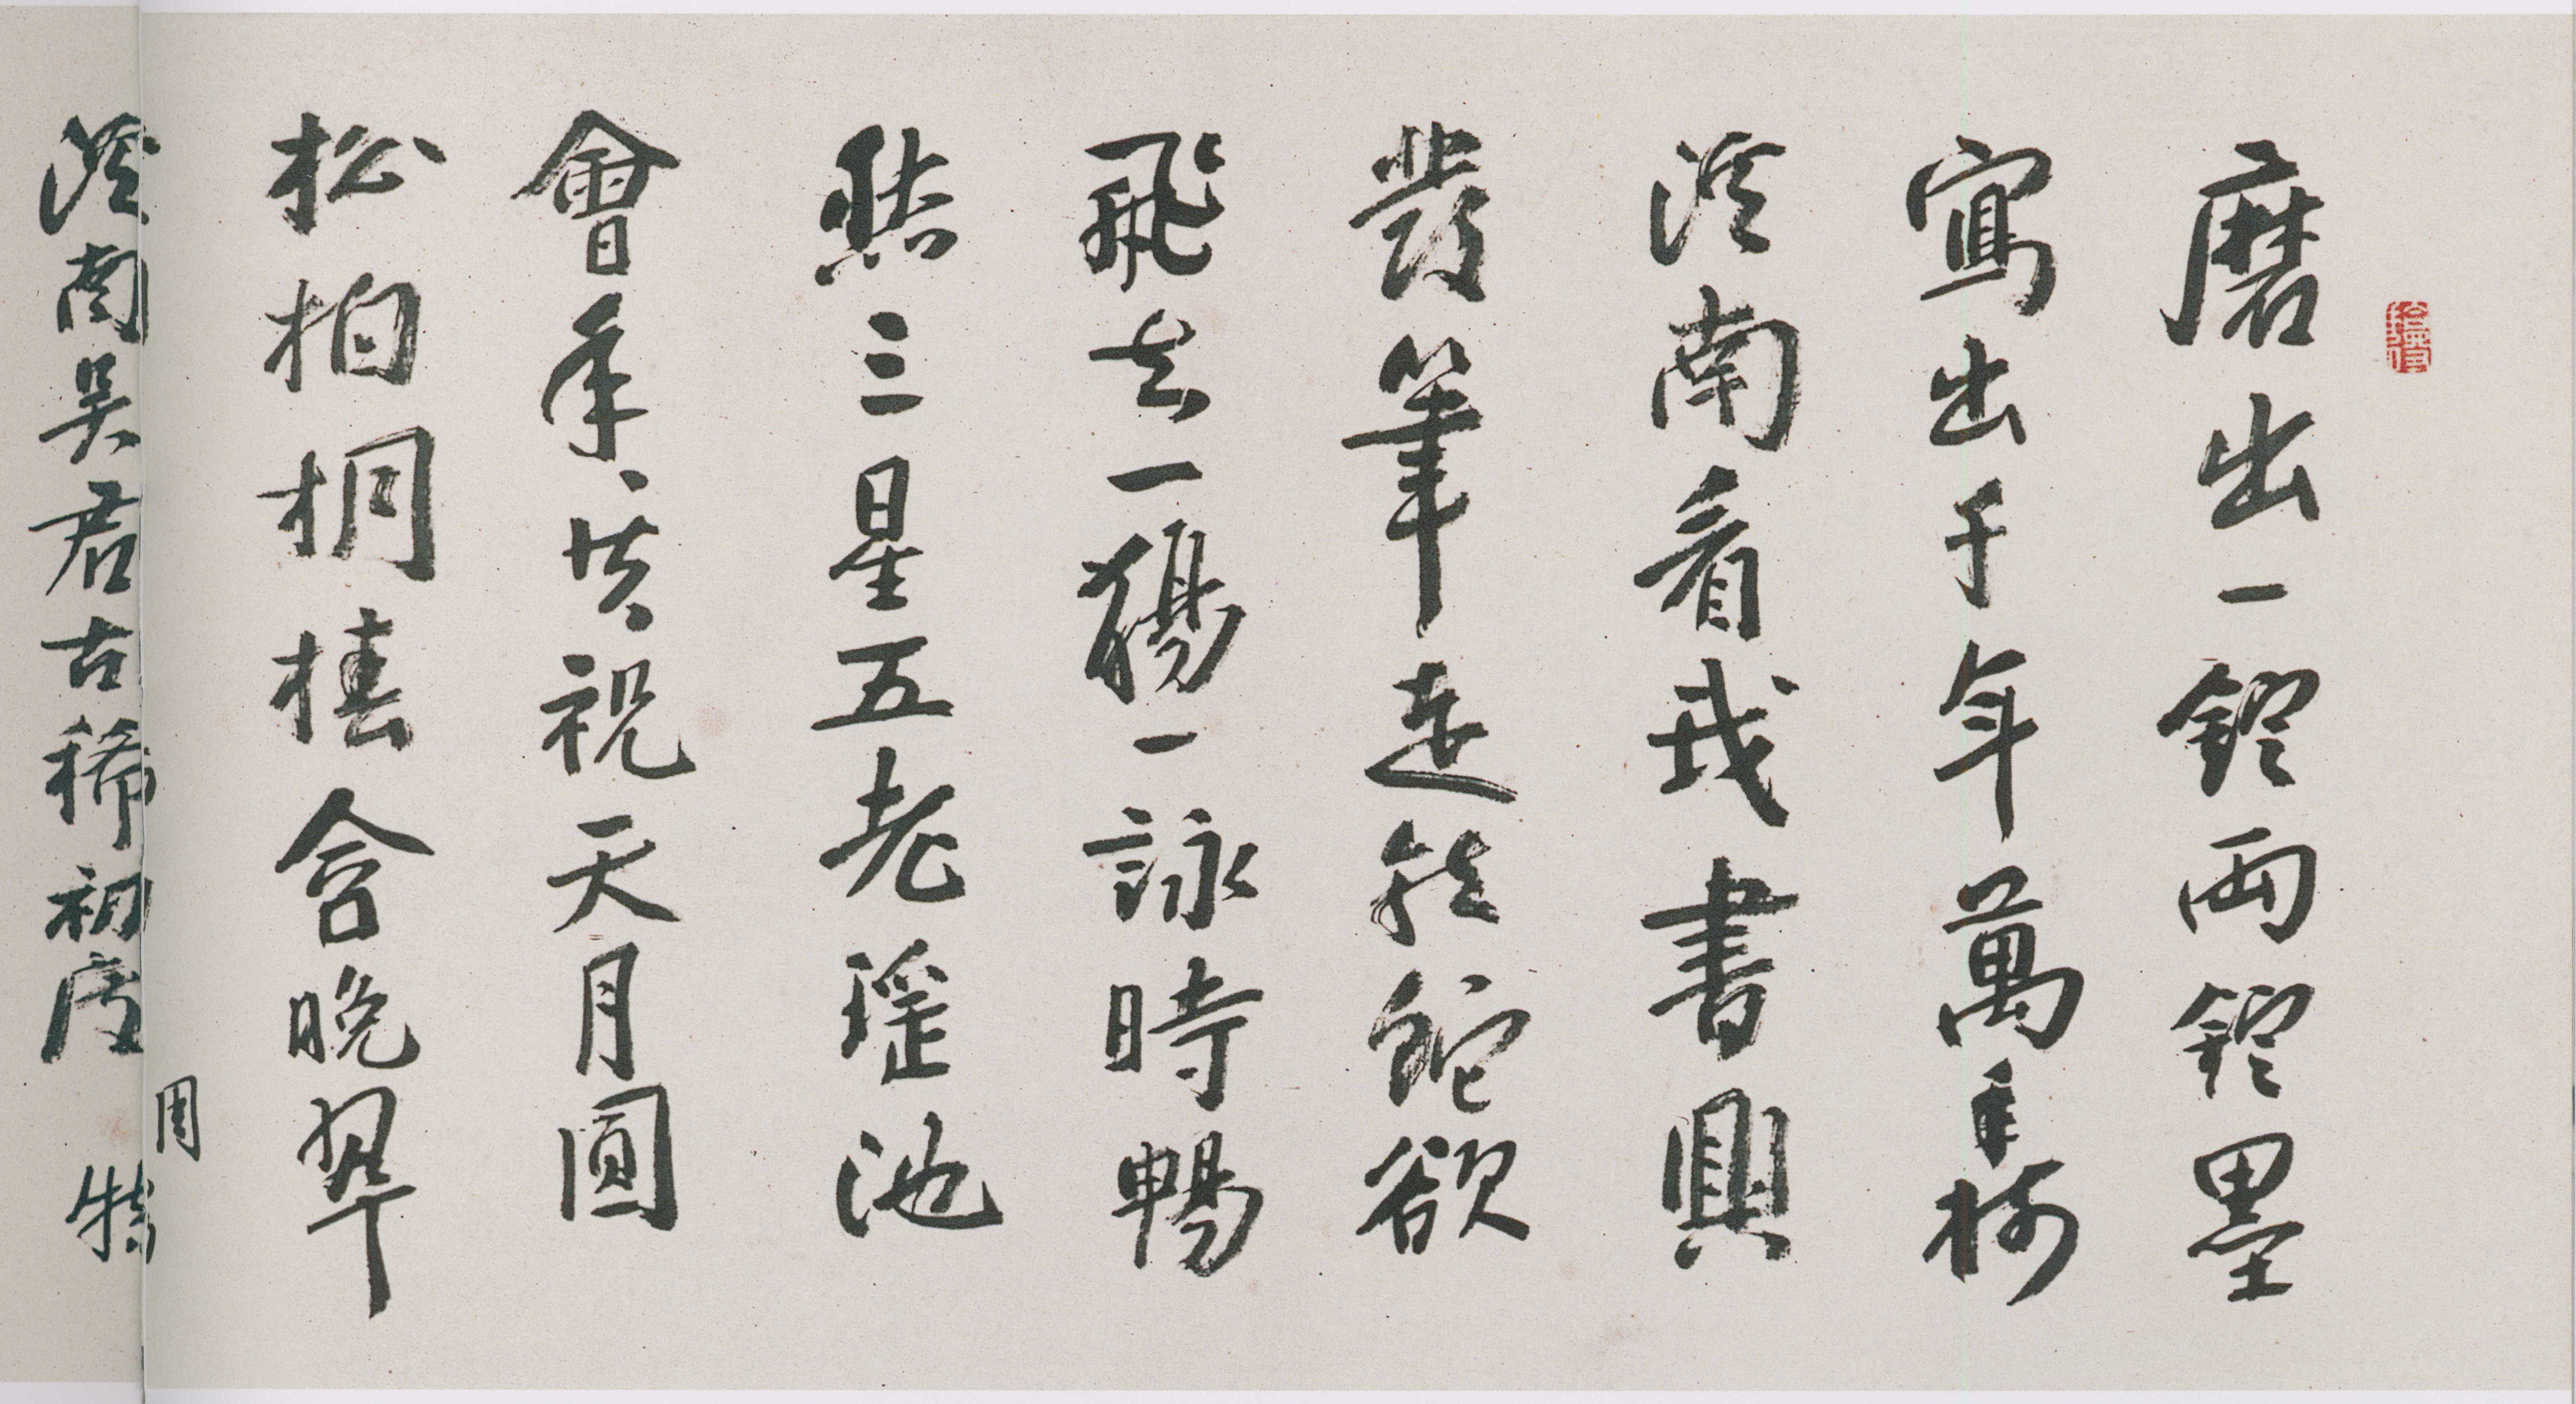 磨出一錠兩錠墨
寫出千年萬年樹
溪南看我書興
發筆走龍蛇欲
飛去一觴一詠時暢
然三星五老瑤池
會年、共祝天月圓
松柏桐椿含晚翠
周
溪南吳君古稀初度 特